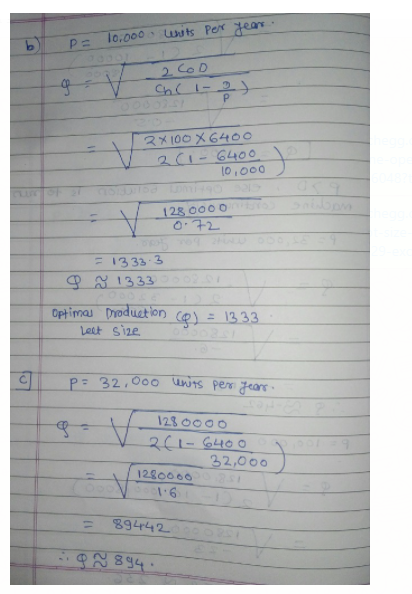 b) P = 10,000. Units Per year.
Q = √(2 C0 D / Ch (1 - D/P))
= √(2×100×6400 / 2(1 - 6400/10,000))
= √(1280000 / 0.72)
= 1333.3
Q ≈ 1333
Optimal Production (Q) = 1333.
Lect Size
c] P = 32,000 Units per year.
Q = √(1280000 / 2(1 - 6400/32,000))
= √(1280000 / 1.6)
= 89442
∴ Q ≈ 894.